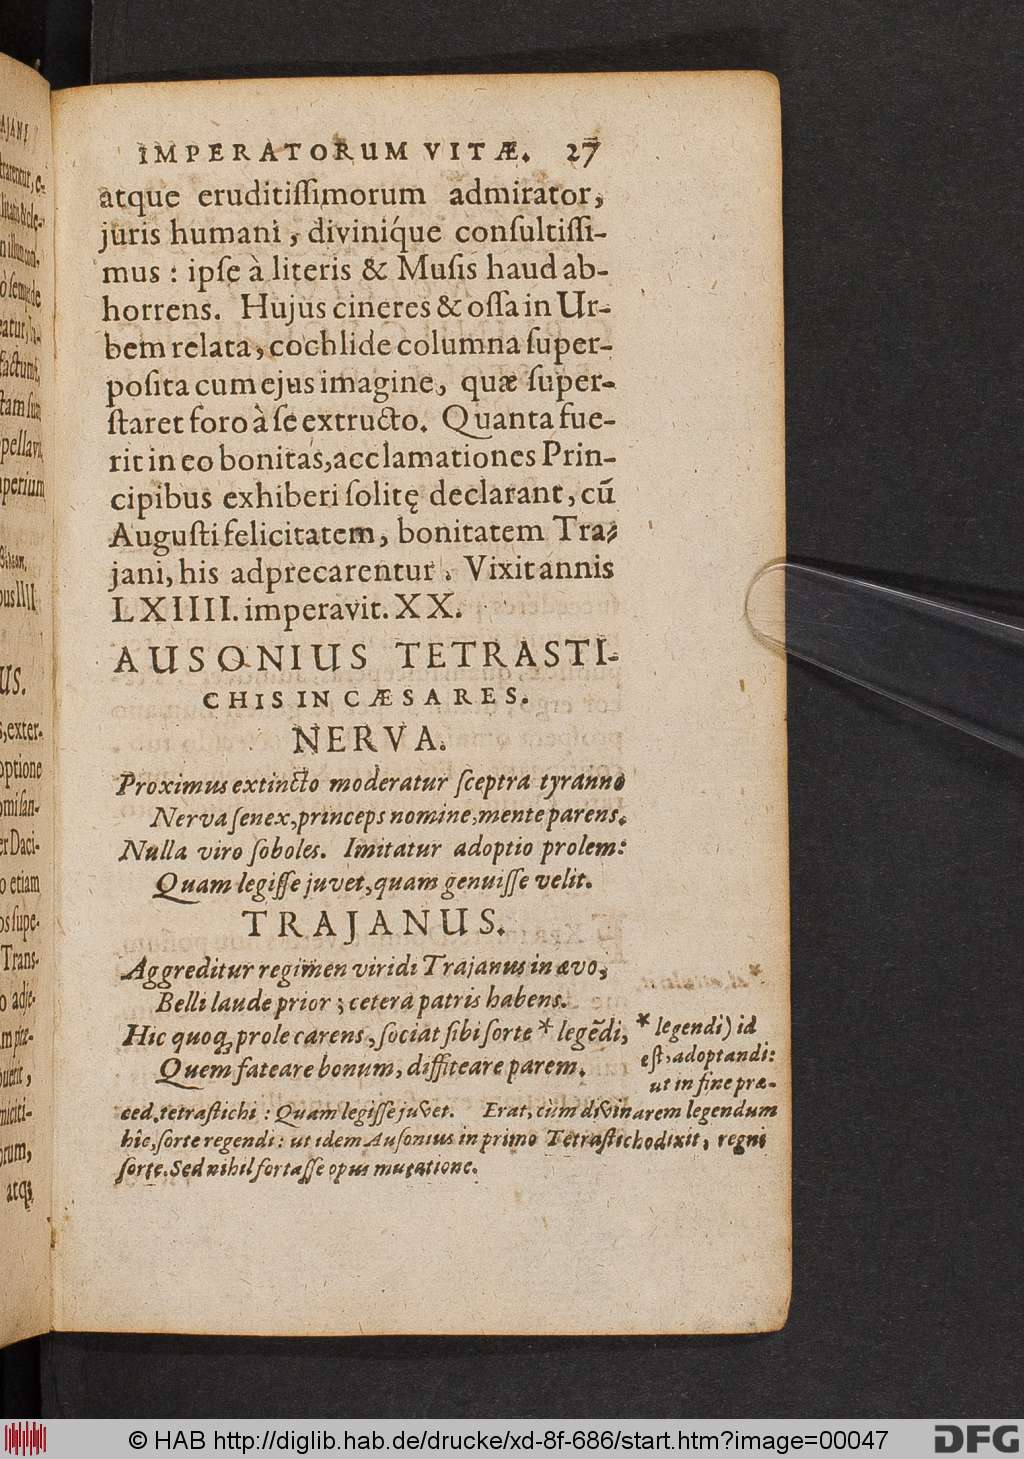 IMPERATORUM VITÆ. 27
atque eruditiſſimorum admirator,
juris humani, diviniq́ue conſultiſſi-
mus : ipſe à literis & Muſis haud ab-
horrens. Hujus cineres & oſſa in Ur-
bem relata, cochlide columna ſuper-
poſita cum ejus imagine, quæ ſuper-
ſtaret foro à ſe extructo. Quanta fue-
rit in eo bonitas, acclamationes Prin-
cipibus exhiberi ſolitę declarant, cũ
Auguſti felicitatem, bonitatem Tra-
jani, his adprecarentur. Vixit annis
LXIIII. imperavit. XX.
AUSONIUS TETRASTI-
CHIS IN CÆSARES.
NERVA.
Proximus extincto moderatur ſceptra tyranno
Nerva ſenex, princeps nomine, mente parens.
Nulla viro ſoboles. Imitatur adoptio prolem:
Quam legiſſe juvet, quam genuiſſe velit.
TRAJANUS.
Aggreditur regimen viridi Trajanus in ævo,
Belli laude prior ; cetera patris habens.
Hic quoq; prole carens, ſociat ſibi ſorte * legẽdi,
Quem fateare bonum, diffiteare parem.
* legendi) id
eſt, adoptandi:
ut in fine præ-
ced. tetraſtichi : Quam legiſſe juvet. Erat, cùm divinarem legendum
hîc, ſorte regendi : ut idem Auſonius in primo Tetraſticho dixit, regni
ſorte. Sed nihil fortaſſe opus mutatione.
© HAB http://diglib.hab.de/drucke/xd-8f-686/start.htm?image=00047
DFG